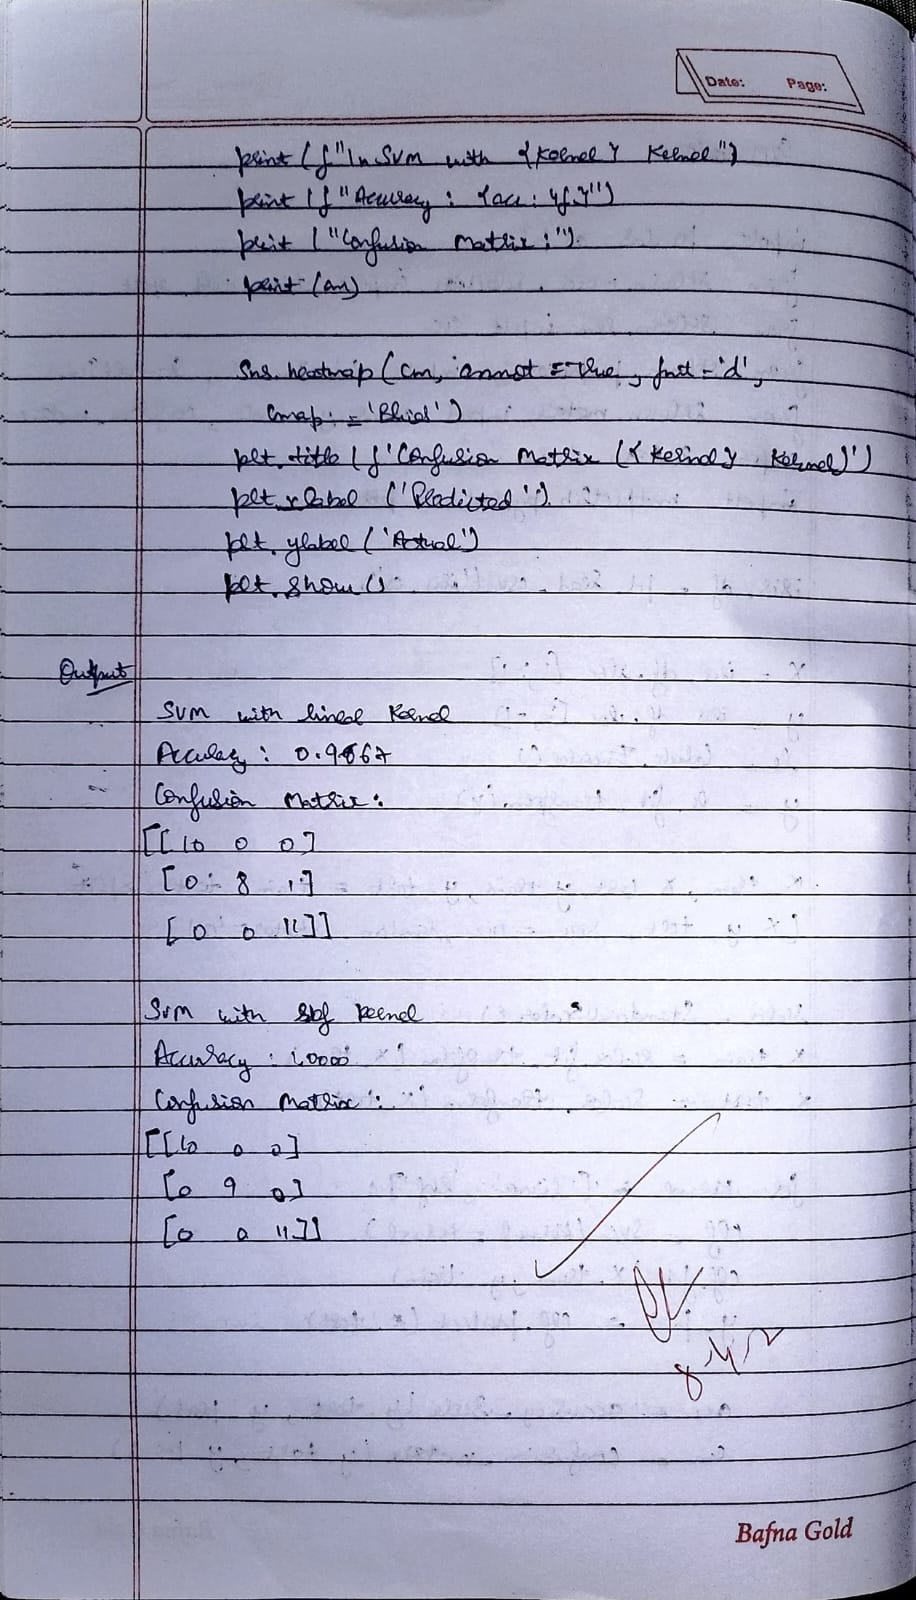 Date: Page:
print (f"\n SVM with {Kernel} Kernel")
print (f"Accuracy : {acc: 4f}")
print ("Confusion Matrix:")
print (cm)
Sns. heatmap (cm, annot = True, fmt = 'd',
Cmap = 'Blues')
plt. title (f'Confusion Matrix ({Kernel} Kernel)')
plt. xlabel ('Predicted')
plt. ylabel ('Actual')
plt. show ()
Output
SVM with linear Kernel
Accuracy : 0.9667
Confusion Matrix :
[[10 0 0]
[0 8 1]
[0 0 11]]
SVM with rbf kernel
Accuracy : 1.0000
Confusion Matrix :
[[10 0 0]
[0 9 0]
[0 0 11]]
Bafna Gold